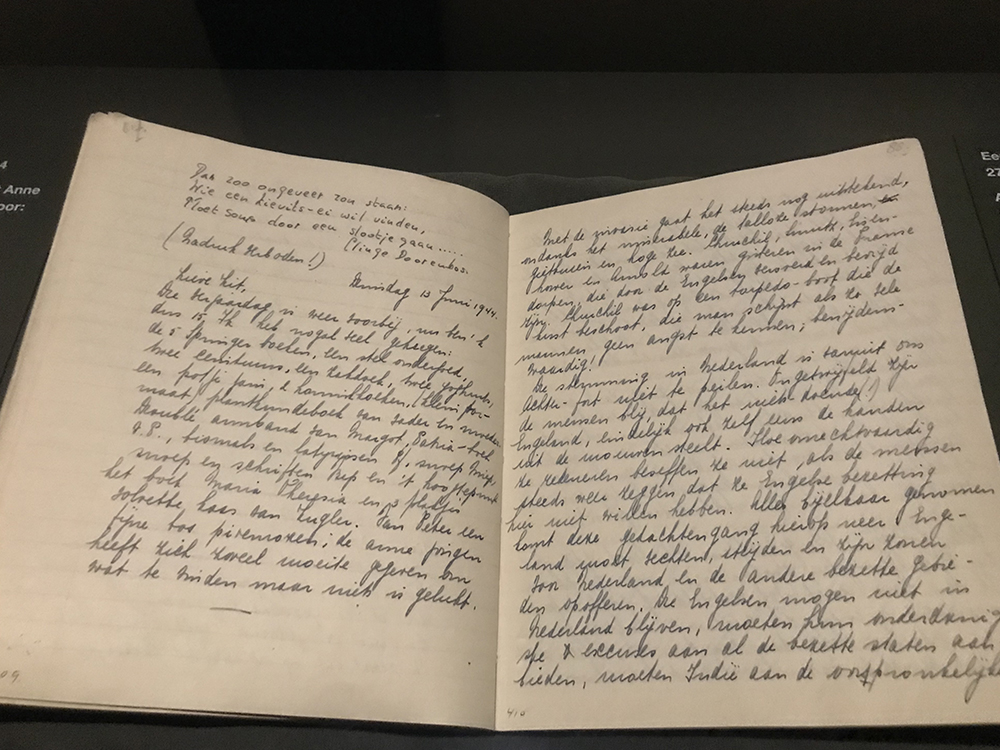 4
Anne
oor:
Dan zoo ongeveer zou staan:
Wie een kievits-ei wil vinden,
Moet soms door een slootje gaan.....
Clinge Doorenbos.
(Nadruk verboden!)
Dinsdag 13 Juni 1944.
Lieve Kit,
De verjaardag is weer voorbij, nu ben 'k
dus 15. Ik heb nogal veel gekregen:
de 5 Springer boeken, een stel ondergoed,
twee ceintuurs, een zakdoek, twee yoghurts,
een potje jam, 2 honingkoeken, (klein for-
maat) plantkundeboek van Vader en Moeder
Doublé armband van Margot, Patria-boek
v.P., biomals en lathyrusen D, snoep Miep,
snoep en schriften Bep en 't hoogtepunt
het boek Maria Theresia en 3 plakjes
volvette kaas van Kugler. Van Peter een
fijne bos pioenrozen; de arme jongen
heeft zich zoveel moeite gegeven om
wat te vinden maar niets is gelukt.
09
Met de invasie gaat het steeds nog uitstekend,
ondanks het miserabele, de talloze stormen,
gietbuien en hoge zee. Churchil, Smuts, Eisen-
hower en Arnold waren gisteren in de Franse
dorpen, die door de Engelsen veroverd en bevrijd
zijn. Churchil was op een torpedo-boot die de
kust beschoot, die man schijnt als zo vele
mannen, geen angst te kennen; benijdens-
waardig!
De stemming in Nederland is vanuit ons
Achter-fort niet te peilen. Ongetwijfeld zijn
de mensen blij, dat het niets doende (!)
Engeland, eindelijk ook zelf eens de handen
uit de mouwen steekt. Hoe onrechtvaardig
ze redeneren beseffen ze niet, als de mensen
steeds weer zeggen dat ze Engelse bezetting
hier niet willen hebben. Alles bijelkaar genomen
komt deze gedachtengang hierop neer Enge-
land moet vechten, strijden en zijn zonen
voor Nederland en de andere bezette gebie-
den opofferen. De Engelsen mogen niet in
Nederland blijven, moeten hun onderdanig
ste excuus aan al de bezette staten aan
bieden, moeten Indië aan de oorspronkelijk
410
Ee
27